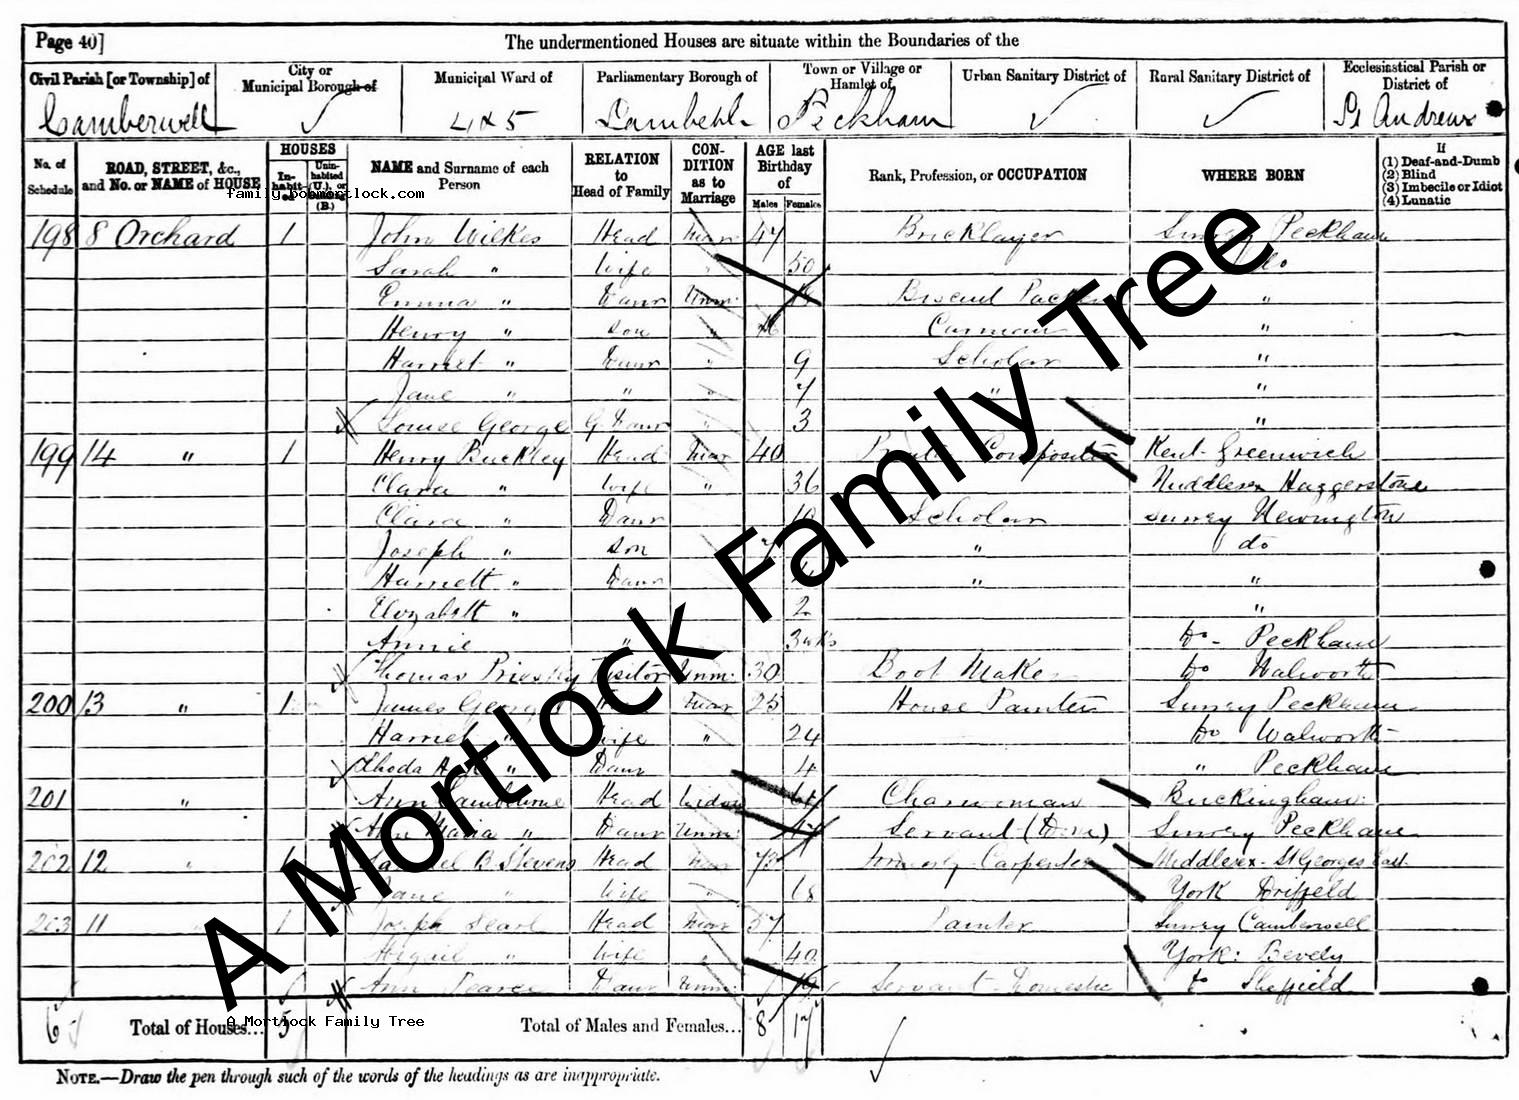 Page 40]
The undermentioned Houses are situate within the Boundaries of the
Civil Parish [or Township] of
City or Municipal Borough of
Municipal Ward of
Parliamentary Borough of
Town or Village or Hamlet of
Urban Sanitary District of
Rural Sanitary District of
Ecclesiastical Parish or District of
Camberwell
4 & 5
Lambeth
Peckham
St Andrews
No. of Schedule
ROAD, STREET, &c., and No. or NAME of HOUSE
HOUSES
Inhabited
Uninhabited (U.), or Building (B.)
NAME and Surname of each Person
RELATION to Head of Family
CONDITION as to Marriage
AGE last Birthday of
Males
Females
Rank, Profession, or OCCUPATION
WHERE BORN
If
(1) Deaf-and-Dumb
(2) Blind
(3) Imbecile or Idiot
(4) Lunatic
family.bobmortlock.com
198 8 Orchard 1 John Wilkes Head Mar 47 Bricklayer Surrey Peckham
Sarah " Wife " 50 do
Emma " Daur Unm. Biscuit Packer "
Henry " Son " 16 Carman "
Harriet " Daur " 9 Scholar "
Jane " " " 7 " "
Louise George G Daur " 3 "
199 14 " 1 Henry Buckley Head Mar 40 Compositor Kent Greenwich
Clara " Wife " 36 Middlesex Haggerstone
Clara " Daur 10 Scholar Surrey Newington
Joseph " Son 7 " do
Harriett " Daur 4 " "
Elizabeth " " 2 "
Annie " 3 wks Do - Peckham
Thomas Visitor Unm. 30 Boot Maker Do Walworth
200 13 " 1 James George Head Mar 25 House Painter Surrey Peckham
Harriet " Wife " 24 Do Walworth
Rhoda " Daur 4 " Peckham
201 " Ann Head Widow Charwoman Buckingham
Ann Maria " Daur Unm. 17 Servant (Dom) Surrey Peckham
202 12 " Samuel B Stevens Head Mar 73 Formerly Carpenter Middlesex - St Georges East
Jane " Wife " 68 York Driffield
203 11 " 1 Joseph Searl Head Mar 57 Painter Surrey Camberwell
" Wife " 40 York: Bevely
Ann Pearce Daur Unm. 19 Servant Domestic Do Sheffield
6 Total of Houses... 5 Total of Males and Females... 8 17
A Mortlock Family Tree
NOTE.—Draw the pen through such of the words of the headings as are inappropriate.
A Mortlock Family Tree